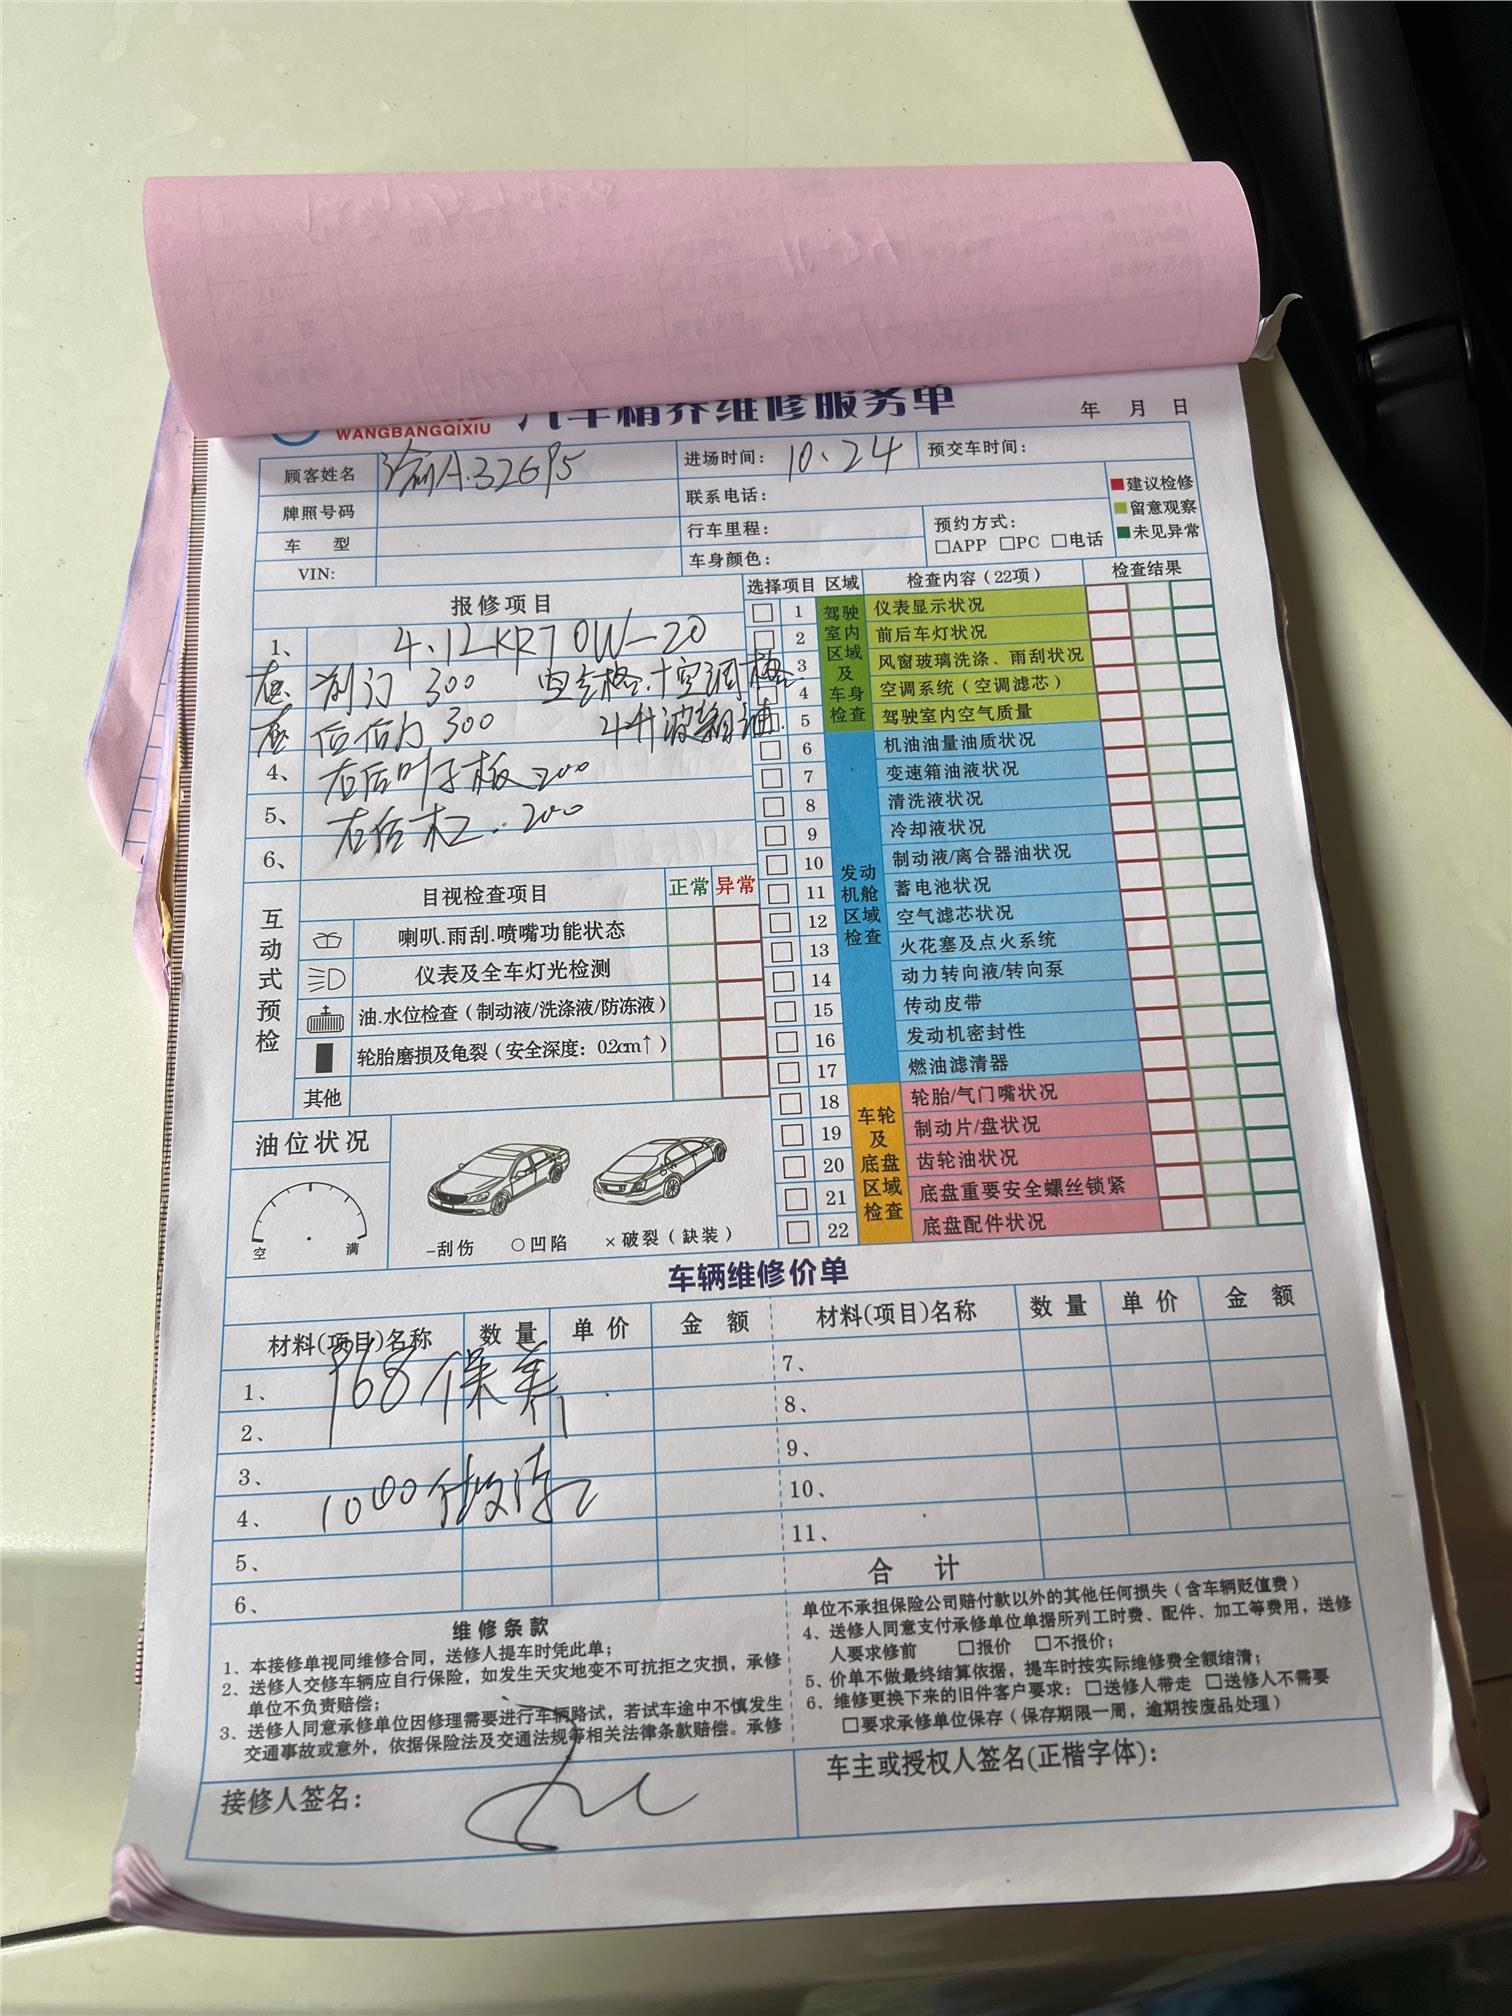 WANGBANGQIXIU 汽车精养维修服务单
年 月 日
顾客姓名 渝A.32695 进场时间: 10.24 预交车时间:
牌照号码 联系电话:
车 型 行车里程: 预约方式:
□APP □PC □电话
VIN: 车身颜色:
■建议检修
■留意观察
■未见异常
报修项目
1、 4.12KR7 0W-20
前门 300 +空调格
300 4升波箱油
4、 右后叶子板 200
5、 右后 200
6、
选择项目 区域 检查内容(22项) 检查结果
驾驶室内区域及车身检查
□ 1 仪表显示状况
□ 2 前后车灯状况
□ 3 风窗玻璃洗涤、雨刮状况
□ 4 空调系统(空调滤芯)
□ 5 驾驶室内空气质量
发动机舱区域检查
□ 6 机油油量油质状况
□ 7 变速箱油液状况
□ 8 清洗液状况
□ 9 冷却液状况
□ 10 制动液/离合器油状况
□ 11 蓄电池状况
□ 12 空气滤芯状况
□ 13 火花塞及点火系统
□ 14 动力转向液/转向泵
□ 15 传动皮带
□ 16 发动机密封性
□ 17 燃油滤清器
车轮及底盘区域检查
□ 18 轮胎/气门嘴状况
□ 19 制动片/盘状况
□ 20 齿轮油状况
□ 21 底盘重要安全螺丝锁紧
□ 22 底盘配件状况
互动式预检
目视检查项目 正常 异常
喇叭.雨刮.喷嘴功能状态
仪表及全车灯光检测
油.水位检查(制动液/洗涤液/防冻液)
轮胎磨损及龟裂(安全深度: 0.2cm↑)
其他
油位状况
空 满
-刮伤 ○凹陷 ×破裂(缺装)
车辆维修价单
材料(项目)名称 数 量 单 价 金 额 材料(项目)名称 数 量 单 价 金 额
1、 968保养 7、
2、 8、
3、 9、
4、 1000 10、
5、 11、
6、 合 计
维修条款
1、本接修单视同维修合同，送修人提车时凭此单;
2、送修人交修车辆应自行保险，如发生天灾地变不可抗拒之灾损，承修
单位不负责赔偿;
3、送修人同意承修单位因修理需要进行车辆路试，若试车途中不慎发生
交通事故或意外，依据保险法及交通法规等相关法律条款赔偿。承修
单位不承担保险公司赔付款以外的其他任何损失(含车辆贬值费)
4、送修人同意支付承修单位单据所列工时费、配件、加工等费用，送修
人要求修前 □报价 □不报价;
5、价单不做最终结算依据，提车时按实际维修费全额结清;
6、维修更换下来的旧件客户要求: □送修人带走 □送修人不需要
□要求承修单位保存(保存期限一周，逾期按废品处理)
接修人签名:
车主或授权人签名(正楷字体):